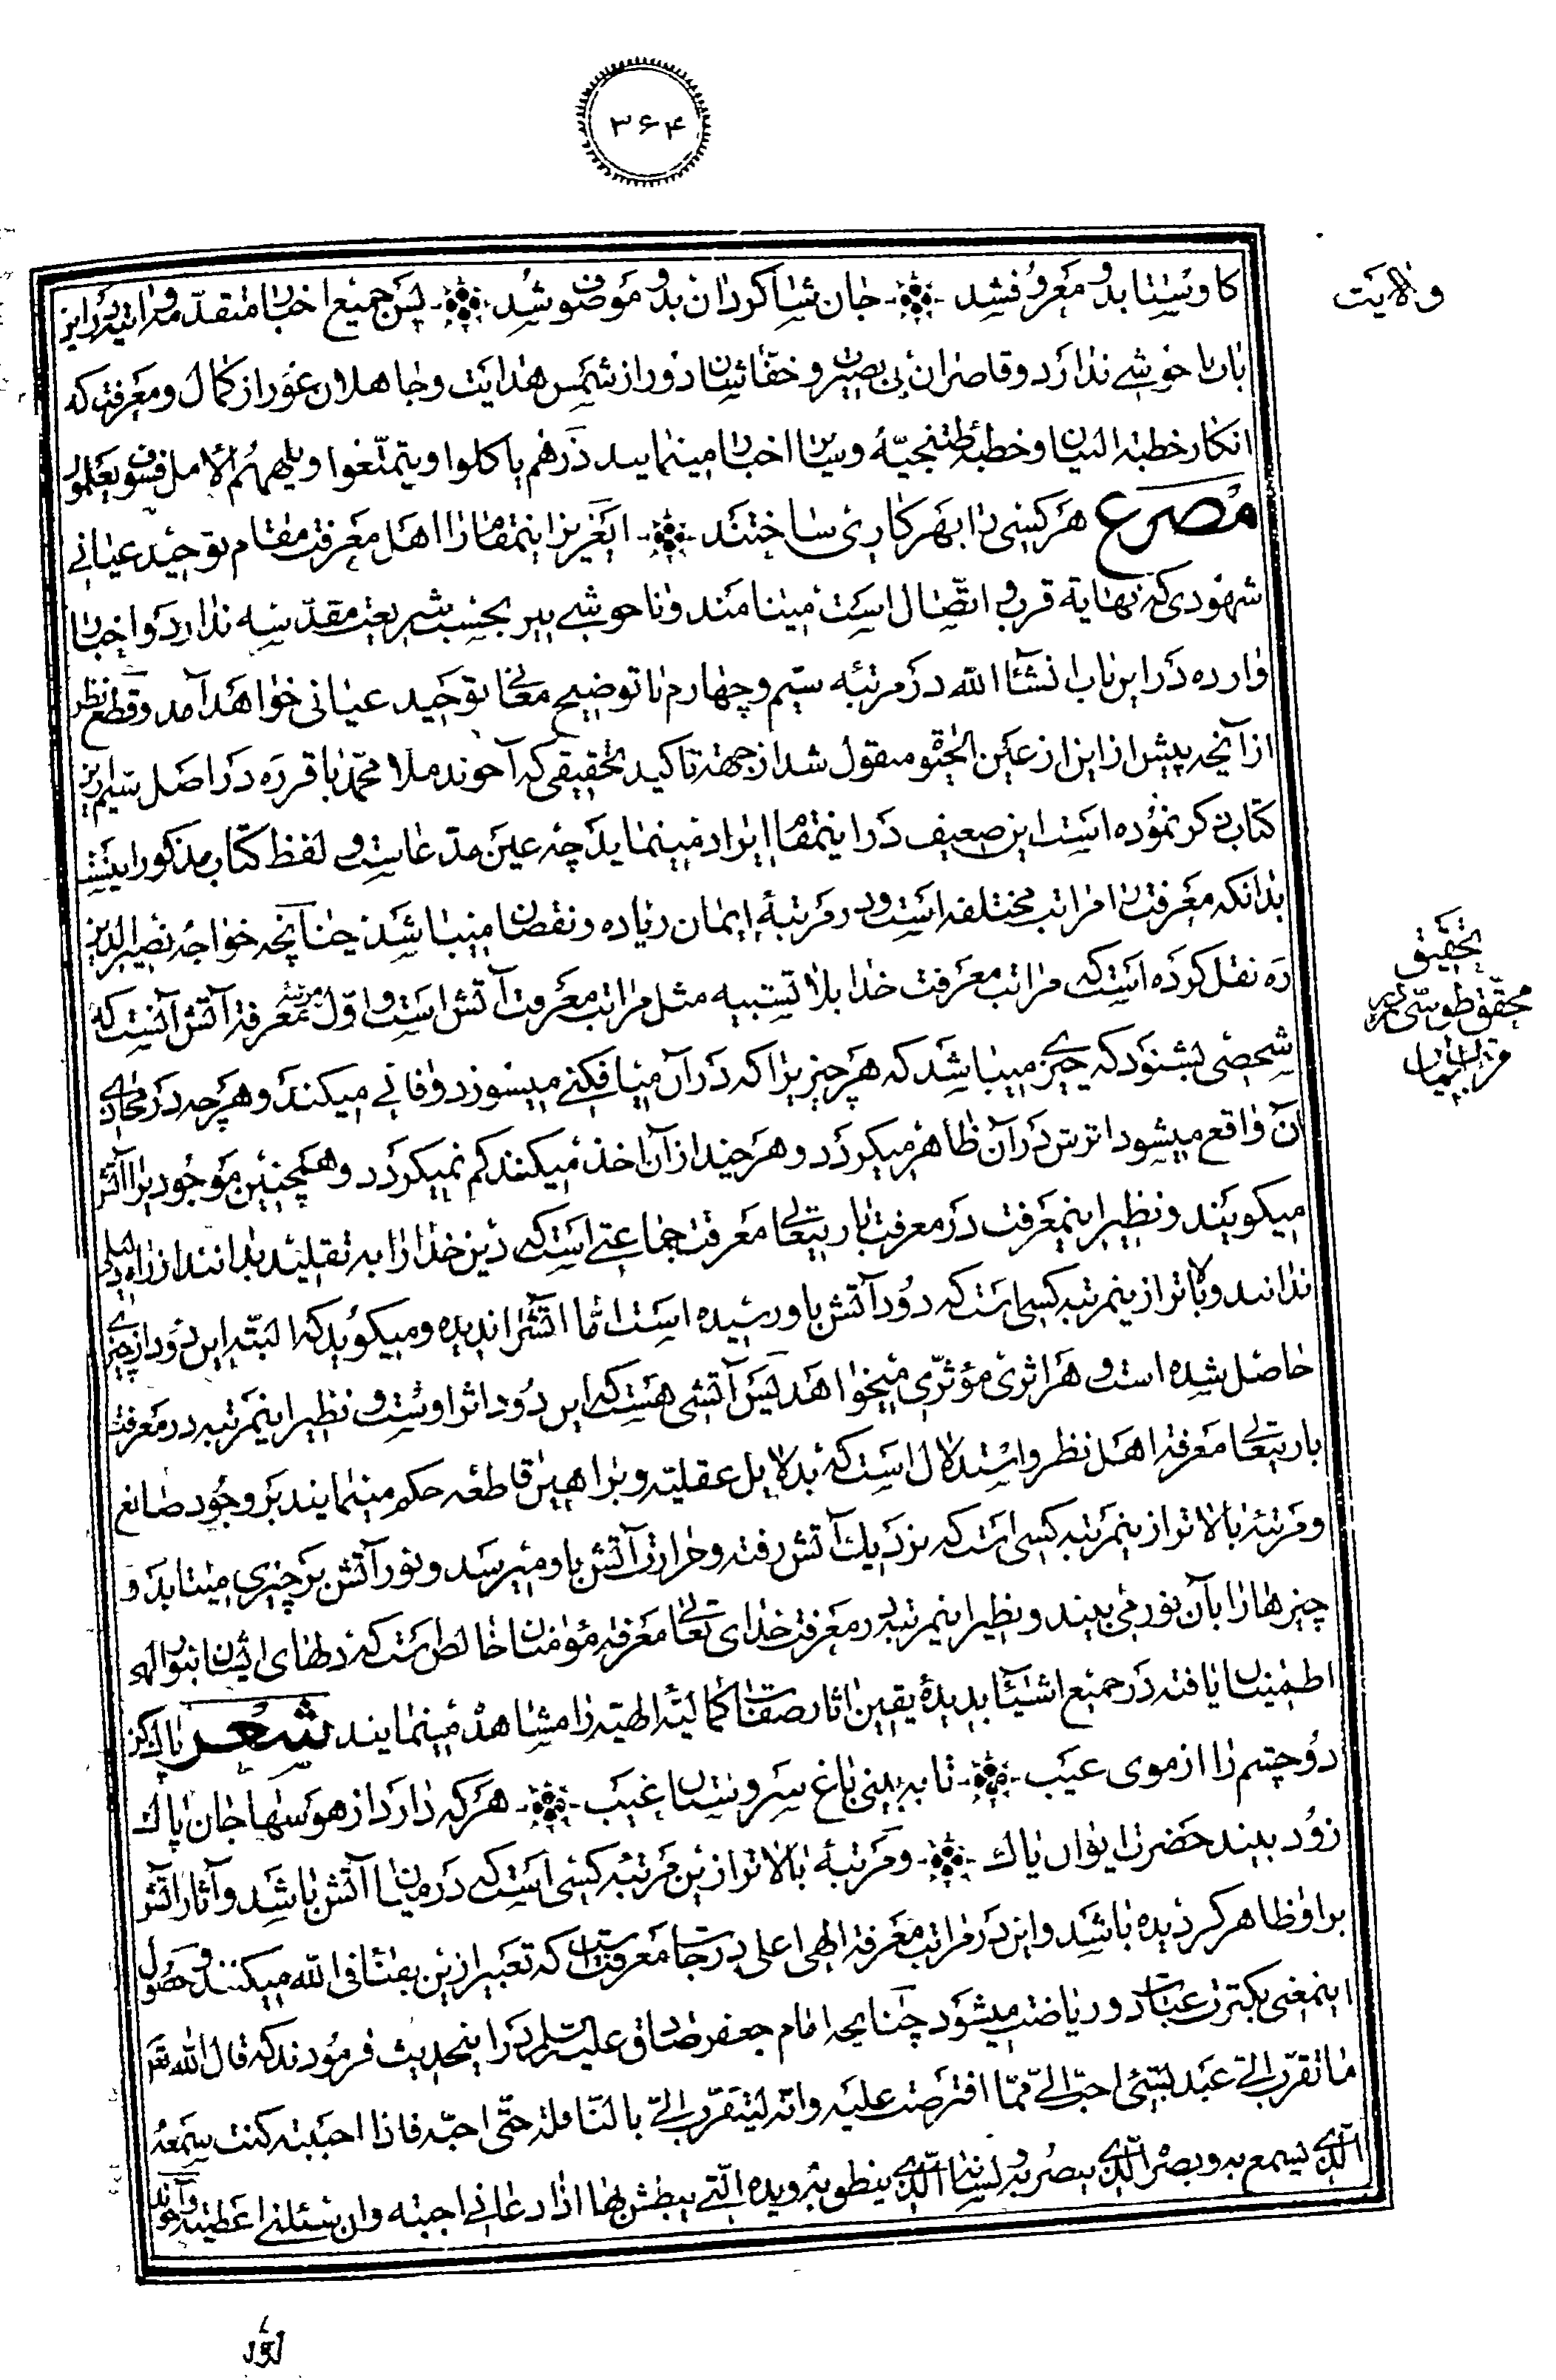 ۳۶۴
ولایت
کاوستا بدو معروف شد جان شاکردان بدو موصوف شد پس جمیع اخبار متقدمه و مراتبه در این
باب با خوشی ندارد و قاصران بی بصیرت و خفاشان دور از شمس هدایت و جاهلان عور از کمال و معرفت که
انکار خطبة البیان و خطبهٔ طتنجیّه و سایر اخبار مینمایند ذرهم یاکلوا و یتمتّعوا و یلههم الامل فسوف یعلمون
مصرع هر کسی را بهر کاری ساختند ایعزیز اینمقام را اهل معرفت مقام توحید عیانی
شهودی که نهایة قرب و اتّصال است مینامند و ناخوشی نیز بحسب شریعت مقدّسه ندارد و اخبار
وارده در این باب انشاء الله در مرتبه سیّم و چهارم با توضیح معنی توحید عیانی خواهد آمد و قطع نظر
از آنچه پیش از این از عین الحیوة منقول شد از جهة تاکید تحقیقی که آخوند ملا محمّد باقر ره در اصل سیّم این
کتاب ذکر نموده است این ضعیف در اینمقام ایراد مینماید چه عین مدّعاست و لفظ کتاب مذکور اینست
بدانکه معرفت را مراتب مختلفه است و در مرتبهٔ ایمان زیاده و نقصان میباشد چنانچه خواجه نصیر الدین
تحقیق
محقّق طوسی در
مراتب ایمان
ره نقل کرده است که مراتب معرفت خدا بلا تشبیه مثل مراتب معرفت آتش است و اوّل مرتبه معرفة آتش آنست که
شخصی بشنود که چیزی میباشد که هر چیزیرا که در آن میافکنے میسوزد و فانی میکند و هر چه در محاذی
آن واقع میشود اثرش در آن ظاهر میکردد و هر چند از آن اخذ میکنند کم نمیکردد و همچنین موجودیرا آتش
میکویند و نظیر اینمعرفت در معرفت باریتعالی معرفت جماعتی است که دین خدا را به تقلید بدانند از راه دلیل
ندانند و بالاتر از ینمرتبه کسی است که دود آتش باو رسیده است امّا آتشرا ندیده و میکوید که البتّه این دود از چیزی
حاصل شده است و هر اثری مؤثّری میخواهد پس آتشی هست که این دود اثر اوست و نظیر اینمرتبه در معرفت
باریتعالی معرفة اهل نظر و استدلال است که بدلایل عقلیّه و براهین قاطعه حکم مینمایند بر وجود صانع
و مرتبهٔ بالاتر از ینمرتبه کسی است که نزدیک آتش رفته و حرارت آتش باو میرسد و نور آتش بر چیزی میتابد و
چیزها را بآن نور می بیند و نظیر اینمرتبه در معرفت خدای تعالی معرفة مؤمنان خالص است که دلهای ایشان بنور الهی
اطمینان یافته در جمیع اشیاء بدیدهٔ یقین اثار صفات کمالیّهٔ الهیّه را مشاهده مینمایند شعر پاک کن
دو چشم را از موی عیب تا به بینی باغ سروستان غیب هر که دارد از هوسها جان پاک
زود بیند حضرت و ایوان پاک و مرتبهٔ بالاتر از ین مرتبه کسی است که در میان آتش باشد و آثار آتش
بر او ظاهر کردیده باشد و این در مراتب معرفة الهی اعلی درجات معرفت است که تعبیر از ین بفناء فی الله میکنند و حصول
اینمعنی بکثرت عبادت و ریاضت میشود چنانچه امام جعفر صادق علیه السّلم در اینحدیث فرمودند که قال الله تع
ما تقرّب الیّ عبد بشیء احبّ الیّ ممّا افترضت علیه و انّه لیتقرّب الیّ بالنّافلة حتّی احبّه فاذا احببته کنت سمعه
الّذی یسمع به و بصره الّذی یبصر به و لسانه الّذی ینطق به و یده الّتی یبطش بها اذا دعانی اجبته و ان سئلنی اعطیته